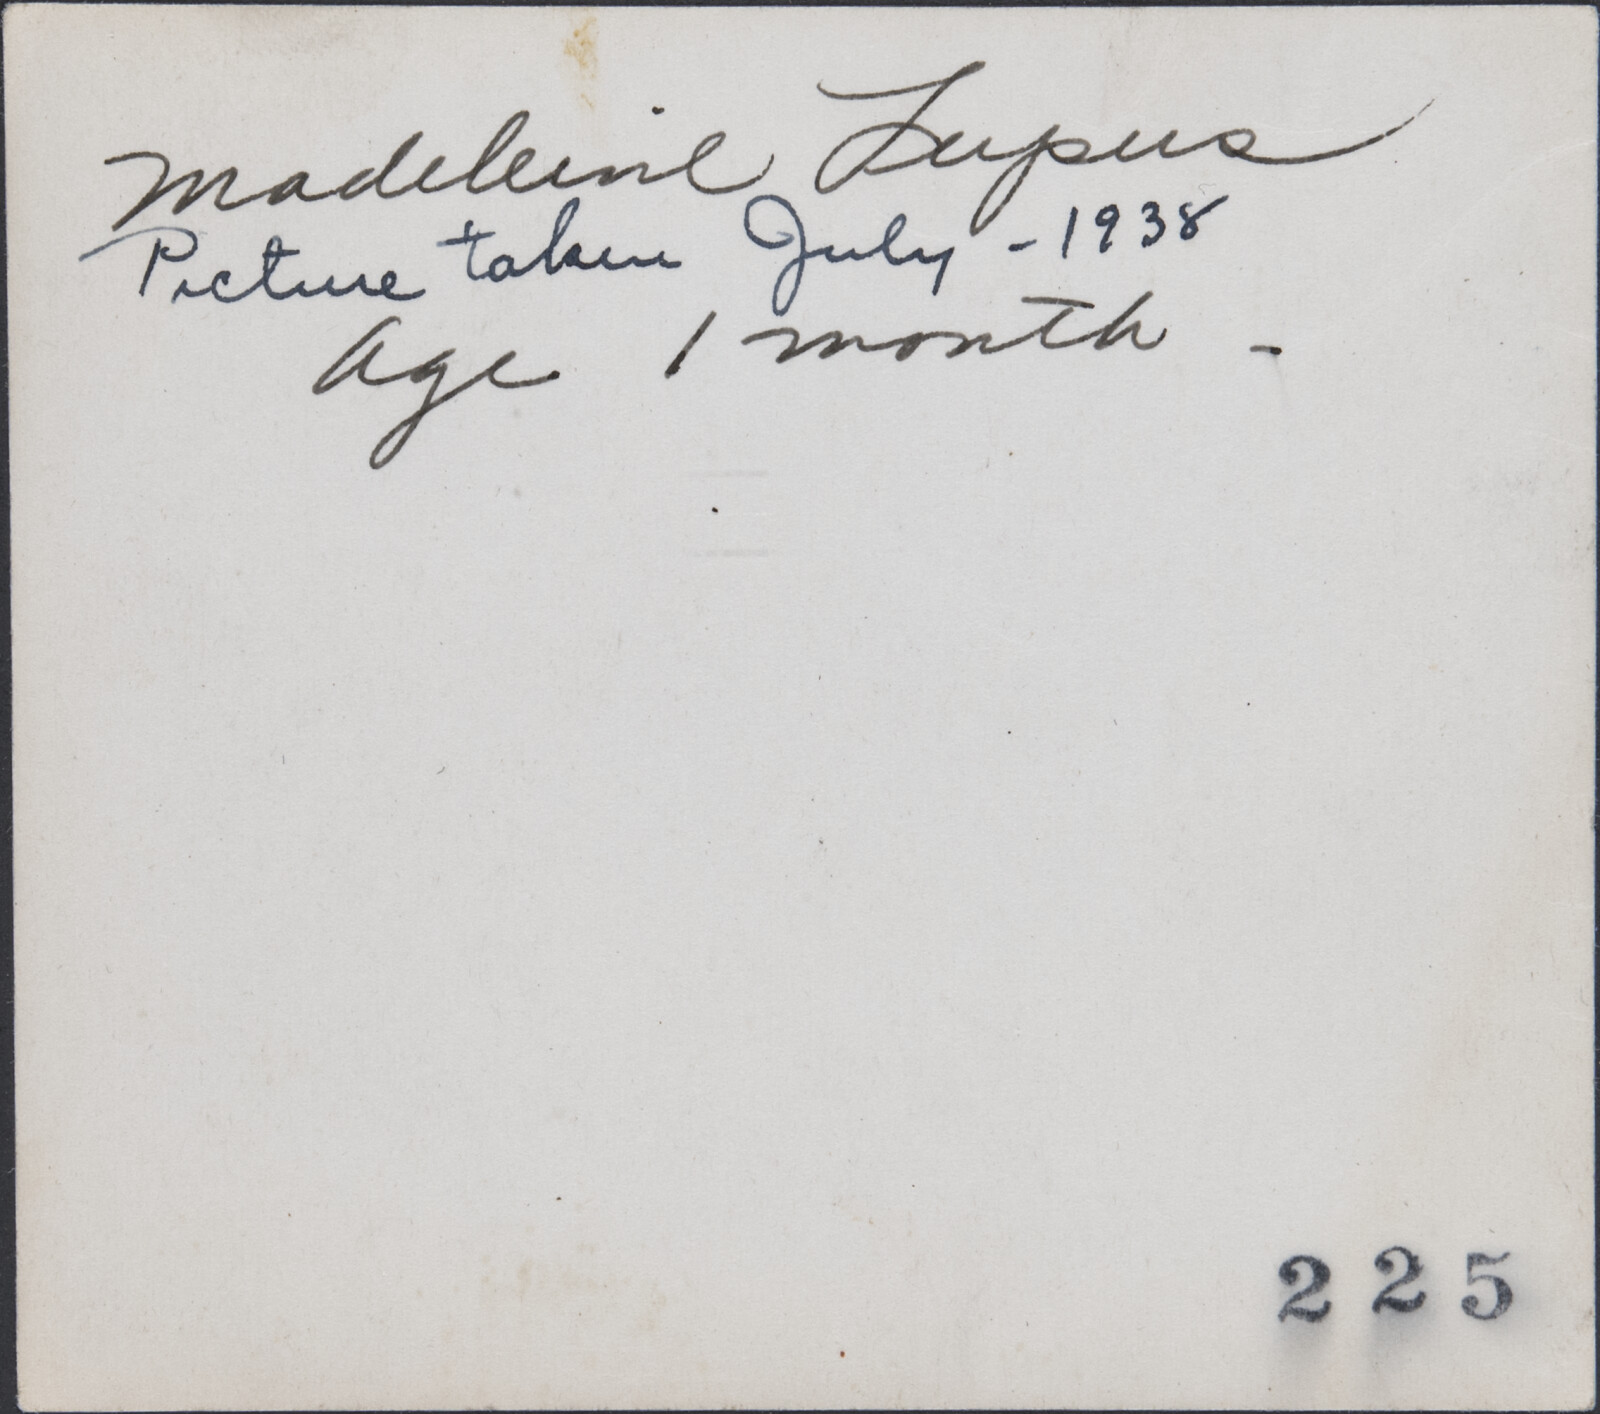 Madeleine Lupus
Picture taken July - 1938
Age 1 month -
225